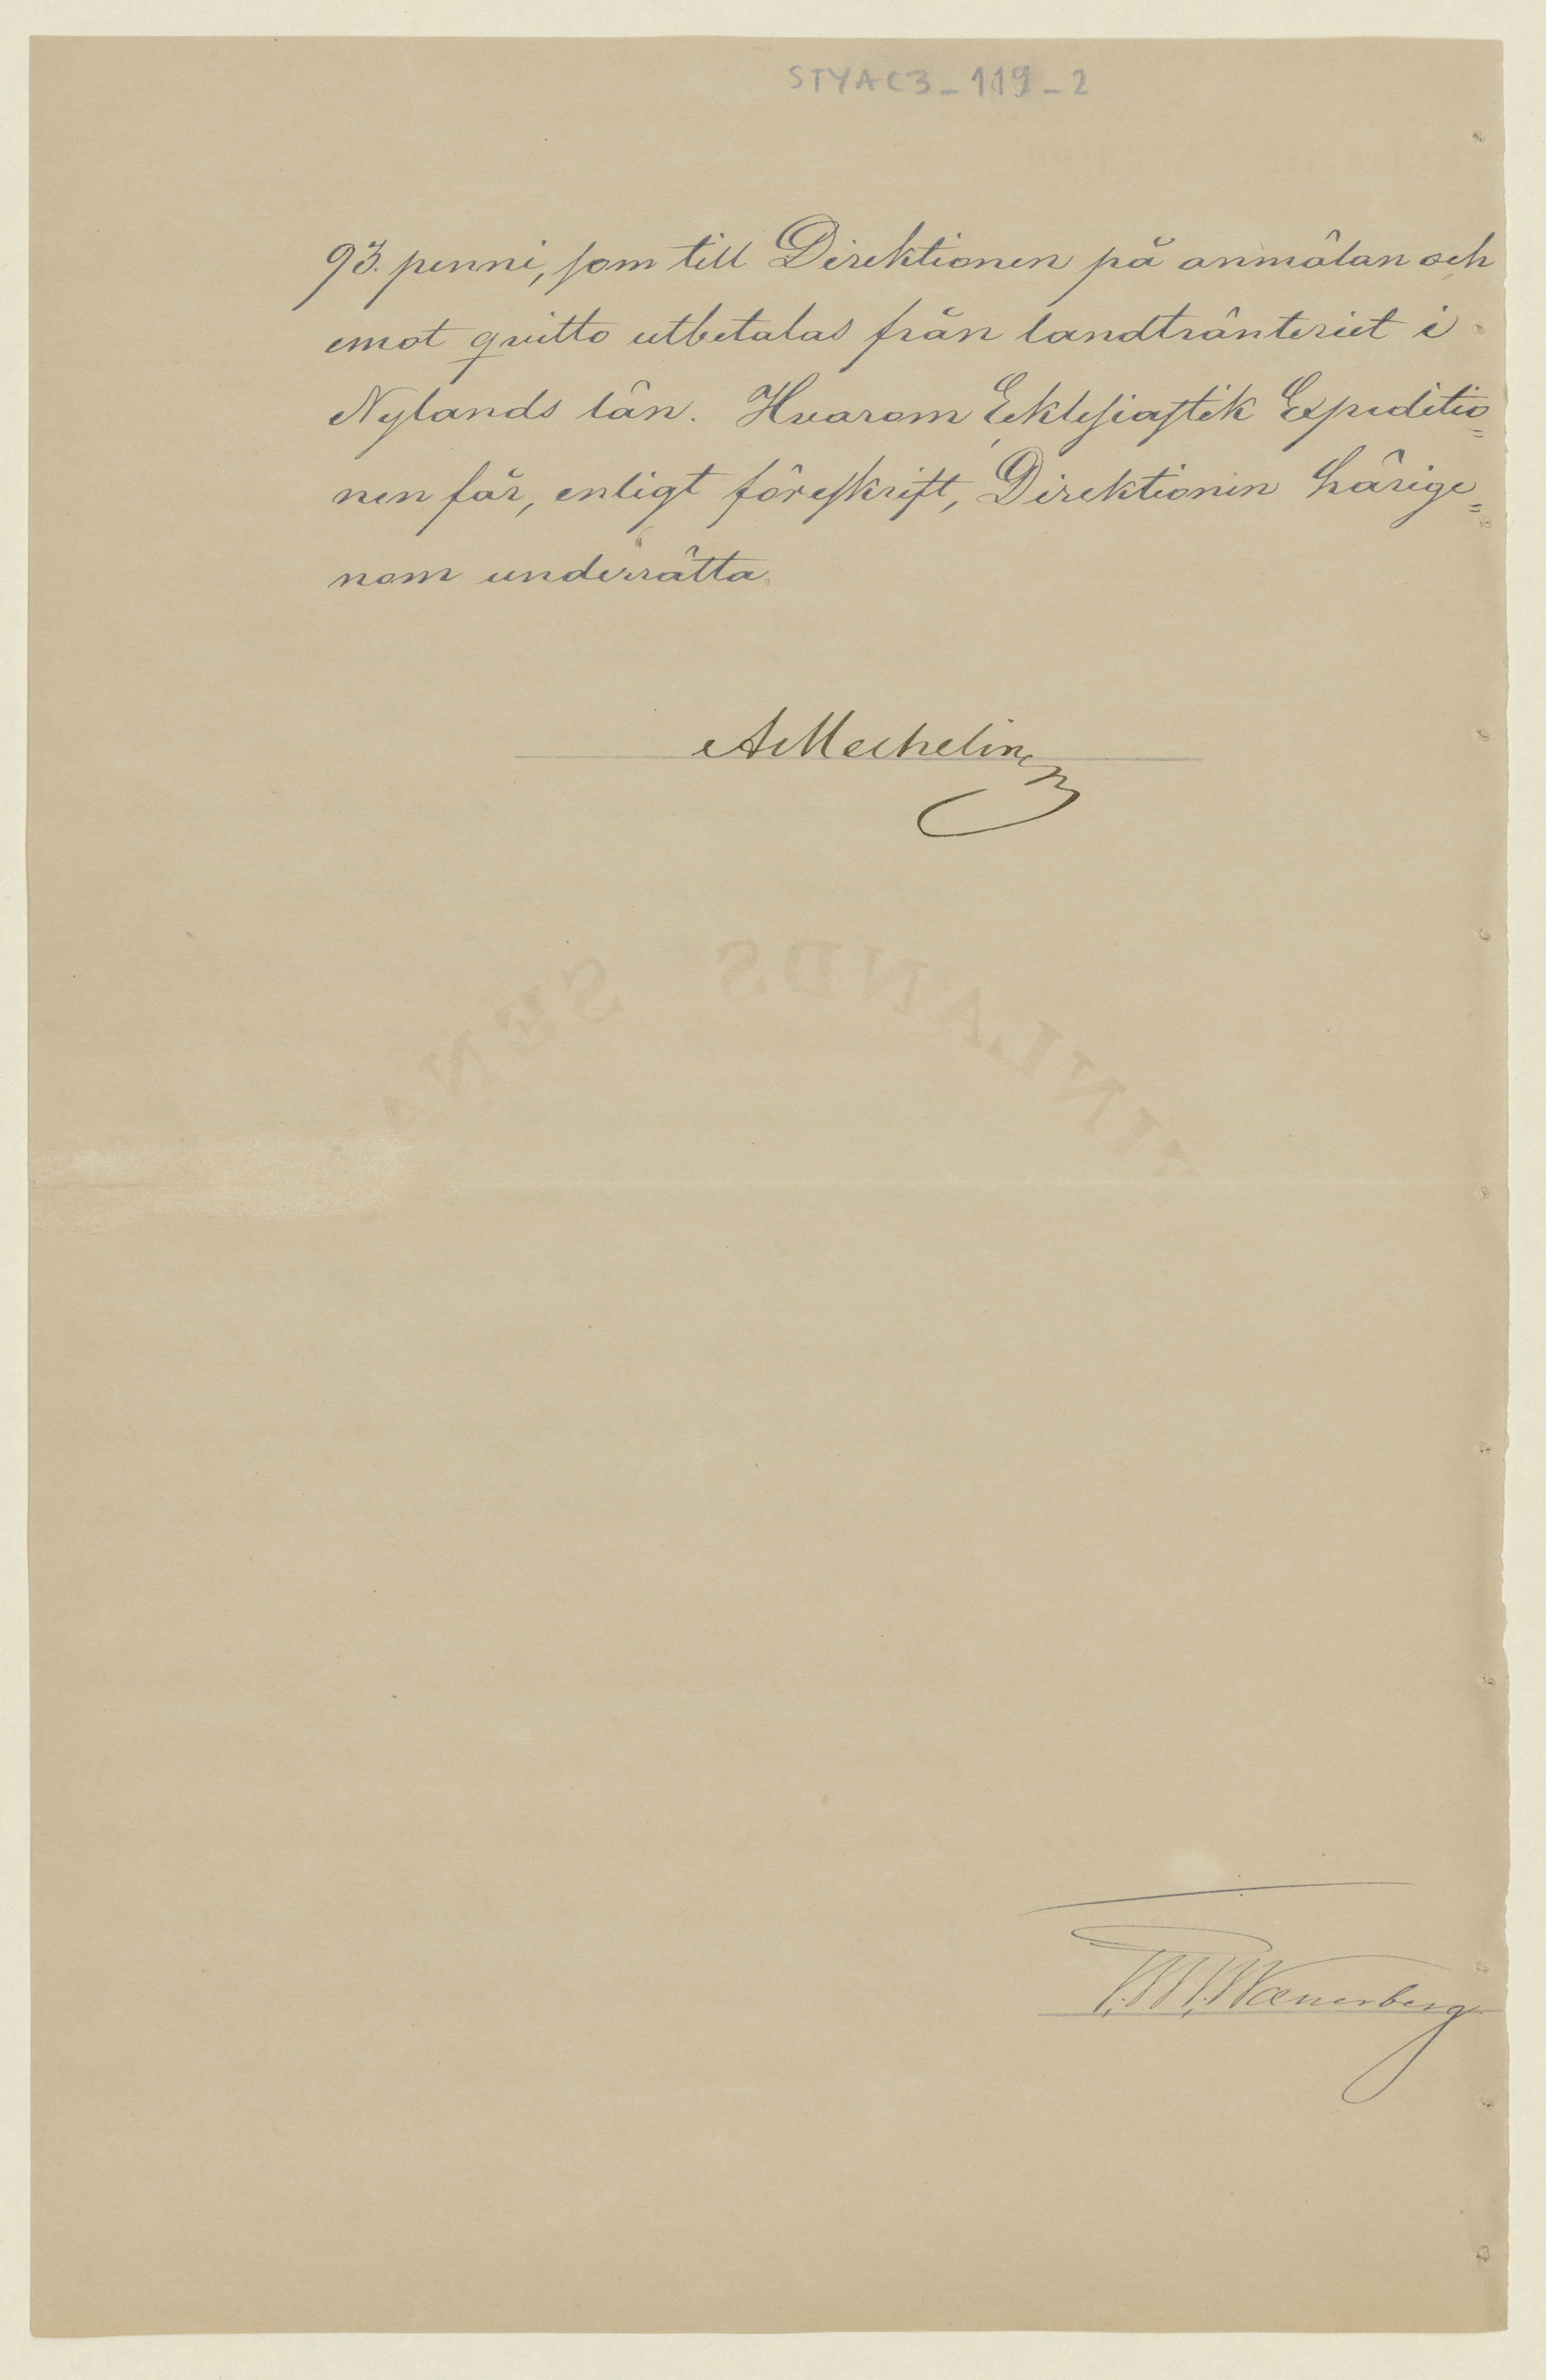 STYAC3_119_2
93. penni, som till Direktionen på anmälan och
emot qvitto utbetalas från landtränteriet i
Nylands län. Hvarom Ecklesiastik Expeditio=
nen får, enligt föreskrift, Direktionen härige=
nom underrätta.
A Mechelin
FINLANDS SEN
Wænerberg